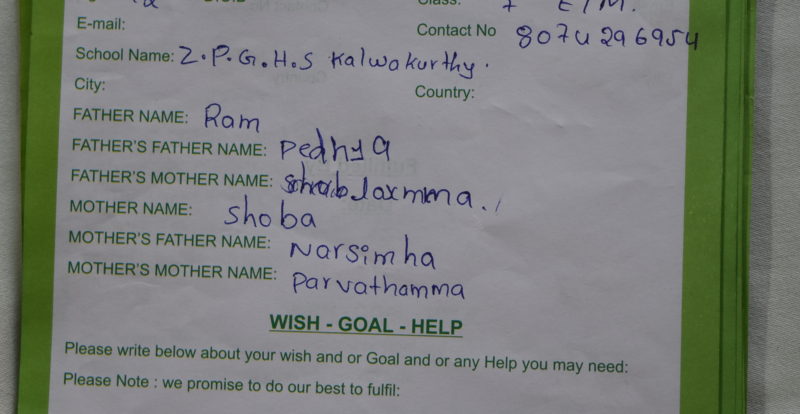 Class: 7 E/M.
E-mail:
Contact No 8074296954
School Name: Z.P.G.H.S Kalwakurthy.
City:
Country:
FATHER NAME: Ram
FATHER'S FATHER NAME: Pedhya
FATHER'S MOTHER NAME:
MOTHER NAME: Shoba
MOTHER'S FATHER NAME: Narsimha
MOTHER'S MOTHER NAME: Parvathamma
WISH - GOAL - HELP
Please write below about your wish and or Goal and or any Help you may need:
Please Note : we promise to do our best to fulfil: